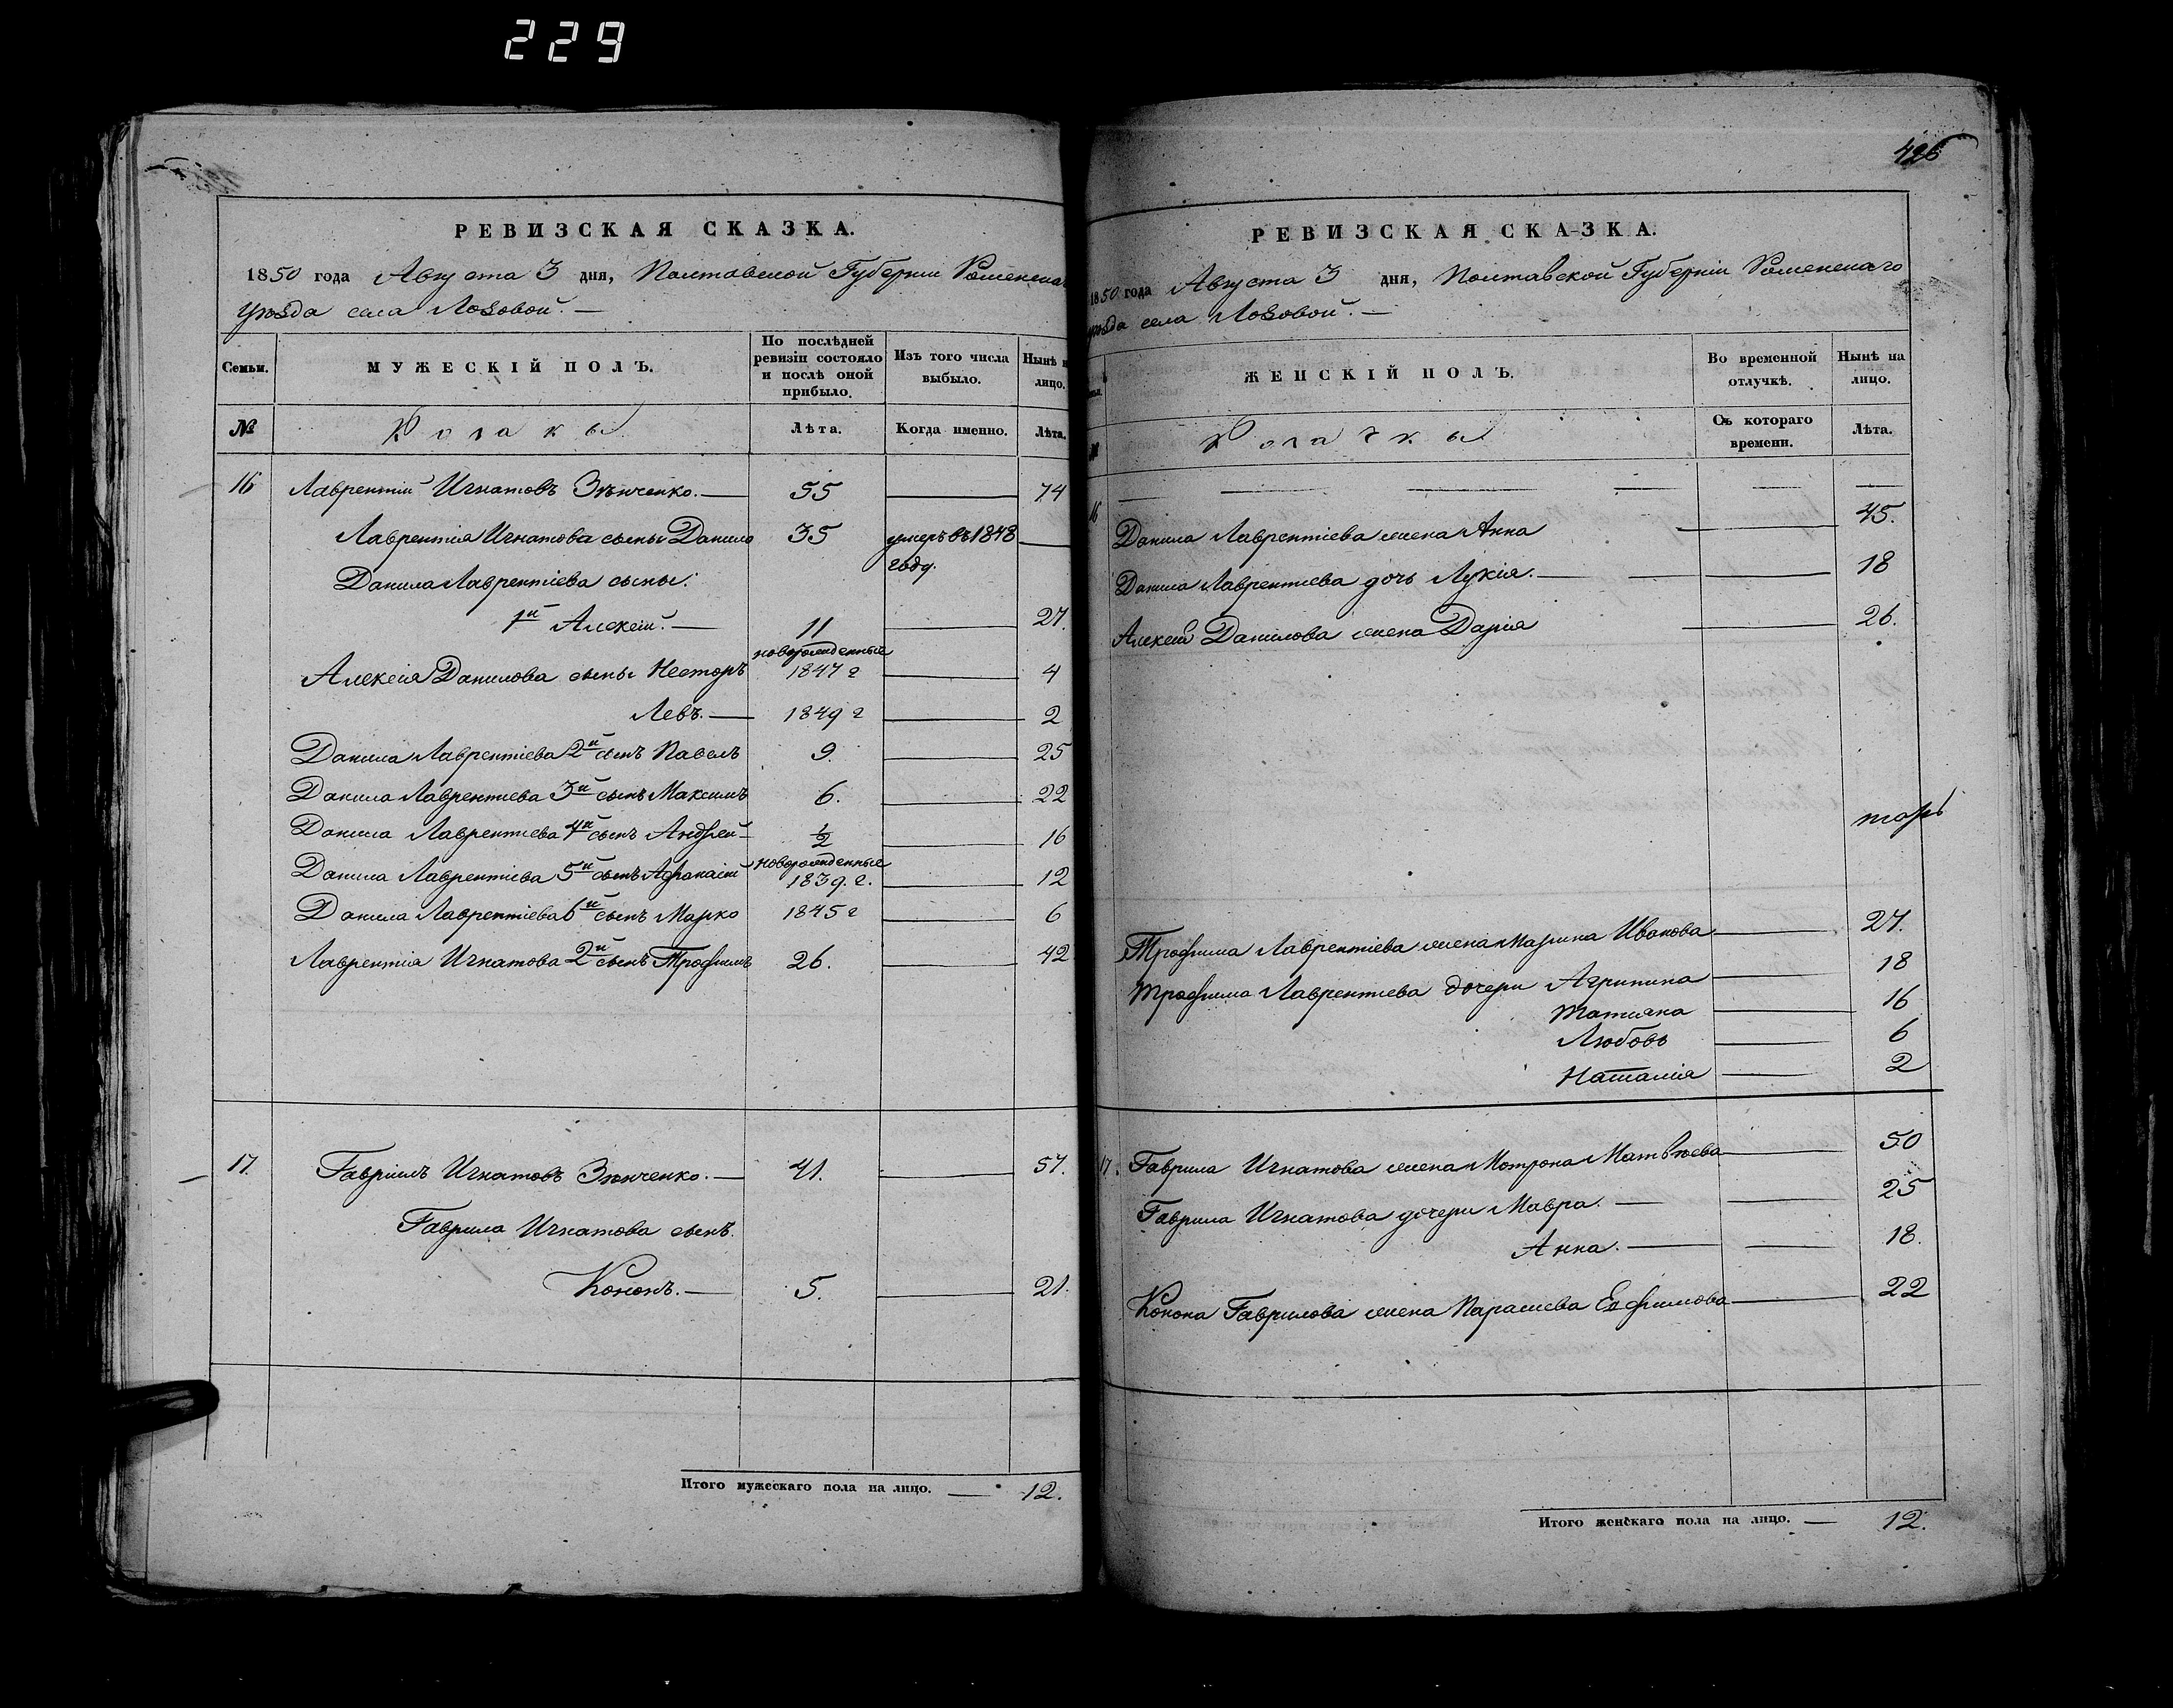 229
426
РЕВИЗСКАЯ СКАЗКА.
1850 года Августа 3 дня, Полтавской Губерніи Роменскаго
уѣзда села Лозовой. —
Семьи.
МУЖЕСКІЙ ПОЛЪ.
По послѣдней ревизіи состояло и послѣ оной прибыло.
Изъ того числа выбыло.
Нынѣ на лицо.
№
Козаки
Лѣта.
Когда именно.
Лѣта.
16 Лаврентій Игнатовъ Зѣнченко. — 55 — 74
Лаврентія Игнатова сынъ Данило 35 умеръ въ 1848 году. —
Данила Лаврентіева сыны:
1й Алексій. — 11 — 27.
Алексія Данилова сыны Несторъ новорожденные 1847 г — 4
Левъ. — 1849 г — 2
Данила Лаврентіева 2й сынъ Павелъ 9. — 25
Данила Лаврентіева 3й сынъ Максимъ 6. — 22
Данила Лаврентіева 4й сынъ Андрей — ½ — 16
Данила Лаврентіева 5й сынъ Афанасій новорожденные 1839. г. — 12
Данила Лаврентіева 6й сынъ Марко 1845 г — 6
Лаврентія Игнатова 2й сынъ Трофимъ 26. — 42
17. Гавріилъ Игнатовъ Зѣнченко. — 41. — 57.
Гаврила Игнатова сынъ.
Кононъ. — 5. — 21.
Итого мужескаго пола на лицо. — 12.
РЕВИЗСКАЯ СКАЗКА.
1850 года Августа 3 дня, Полтавской Губерніи Роменскаго
уѣзда села Лозовой. —
ЖЕНСКІЙ ПОЛЪ.
Во временной отлучкѣ.
Нынѣ на лицо.
Козачки
Съ котораго времени.
Лѣта.
16 Данила Лаврентіева жена Анна — 45.
Данила Лаврентіева дочь Лукія. — 18
Алексія Данилова жена Дарія — 26.
Трофима Лаврентіева жена Марина Иванова — 27.
Трофима Лаврентіева дочери Агрипина — 18
Татіяна — 16
Любовь — 6
Наталія — 2
17. Гаврила Игнатова жена Мотрона Матвѣева — 50
Гаврила Игнатова дочери Мавра. — 25
Анна. — 18.
Конона Гаврилова жена Параскева Евфимова — 22
Итого женскаго пола на лицо. — 12.